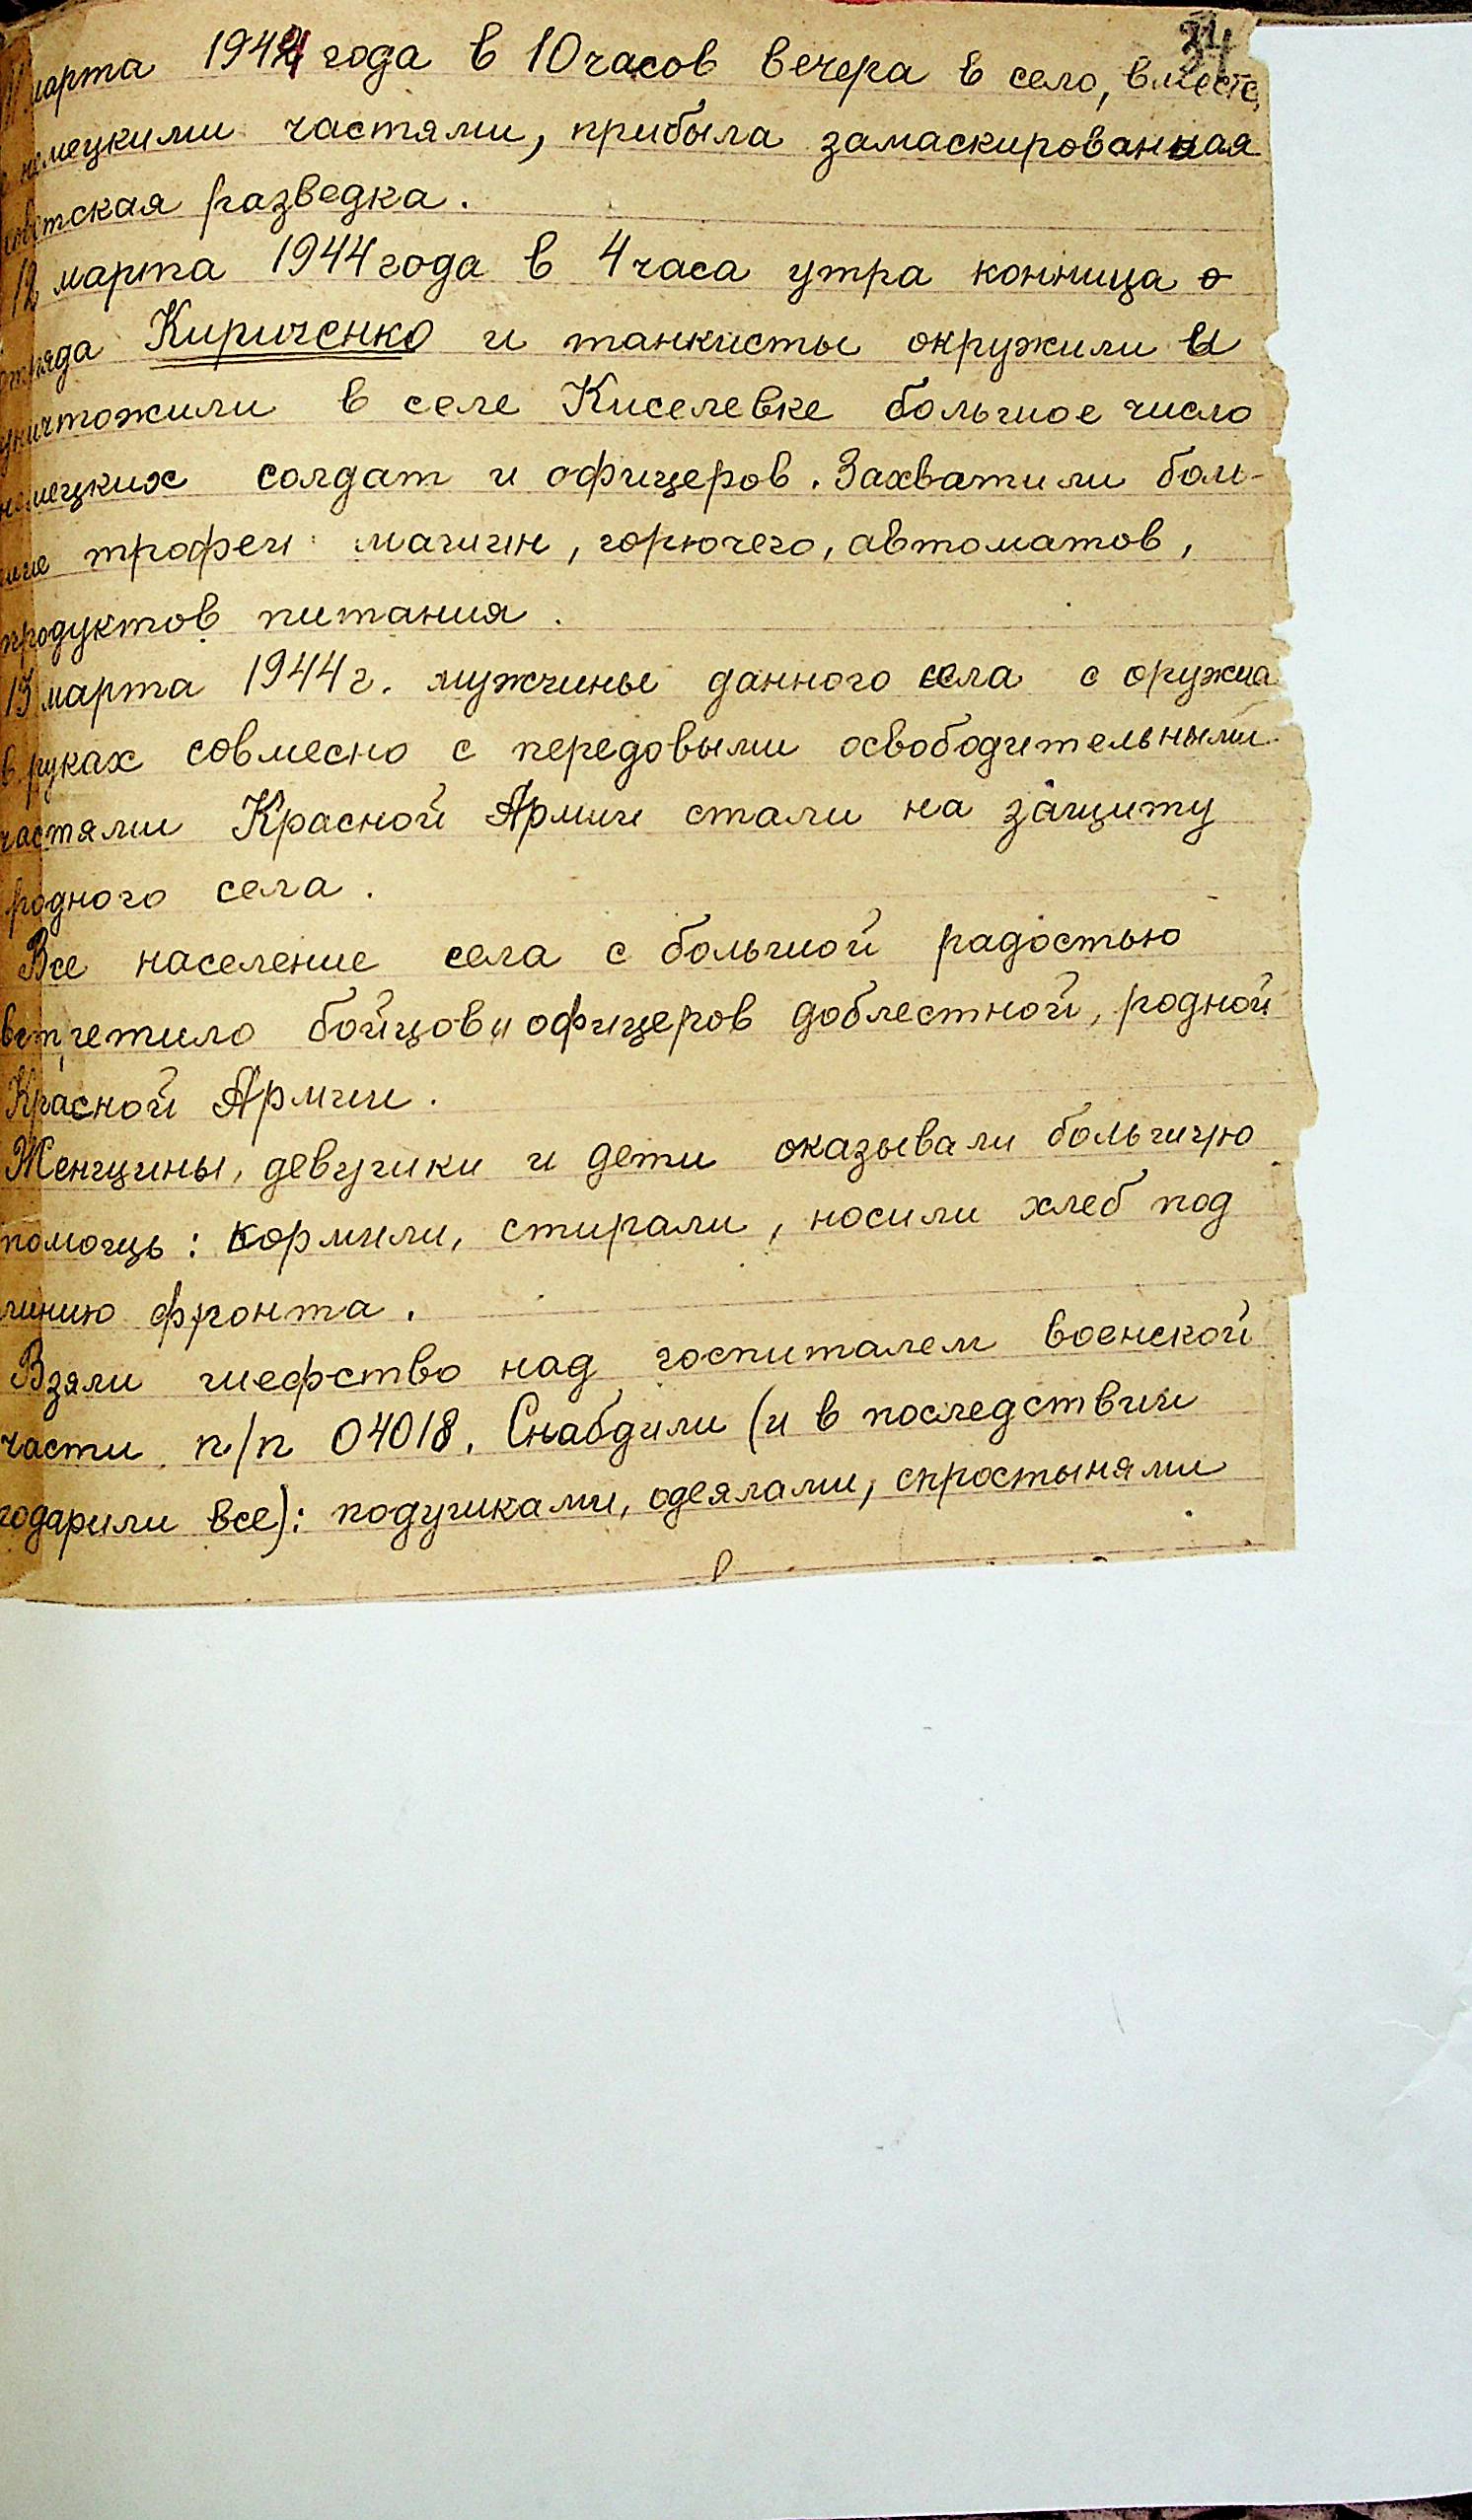 34
11 марта 1944 года в 10 часов вечера в село, вместе,
с немецкими частями, прибыла замаскированная
советская разведка.
12 марта 1944 года в 4 часа утра конница о
отряда Кириченко и танкисты окружили и
уничтожили в селе Киселевке большое число
немецких солдат и офицеров. Захватили боль-
шие трофеи: машин, горючего, автоматов,
продуктов питания.
13 марта 1944 г. мужчины данного села с оружиа
в руках совмесно с передовыми освободительными
частями Красной Армии стали на защиту
родного села.
Все население села с большой радостью
встретило бойцов и офицеров доблестной, родной
Красной Армии.
Женщины, девушки и дети оказывали большую
помощь: кормили, стирали, носили хлеб под
линию фронта.
Взяли шефство над госпиталем военской
части п/п 04018. Снабдили (и в последствии
подарили все): подушками, одеялами, спростынями